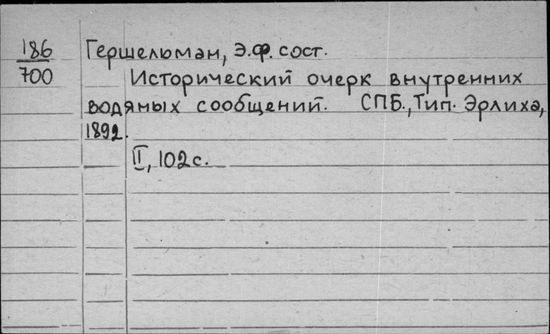 186
700
Гершельман, Э.Ф. сост.
Исторический очерк внутренних
водяных сообщений. СПБ., Тип. Эрлиха,
1892.
II, 102 с.